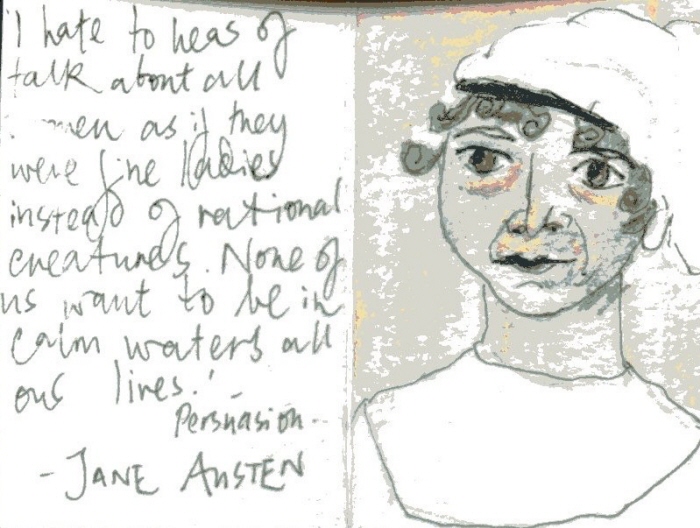 'I hate to hear of
talk about all
women as if they
were fine ladies
instead of rational
creatures. None of
us want to be in
calm waters all
our lives.'
Persuasion -
- JANE AUSTEN